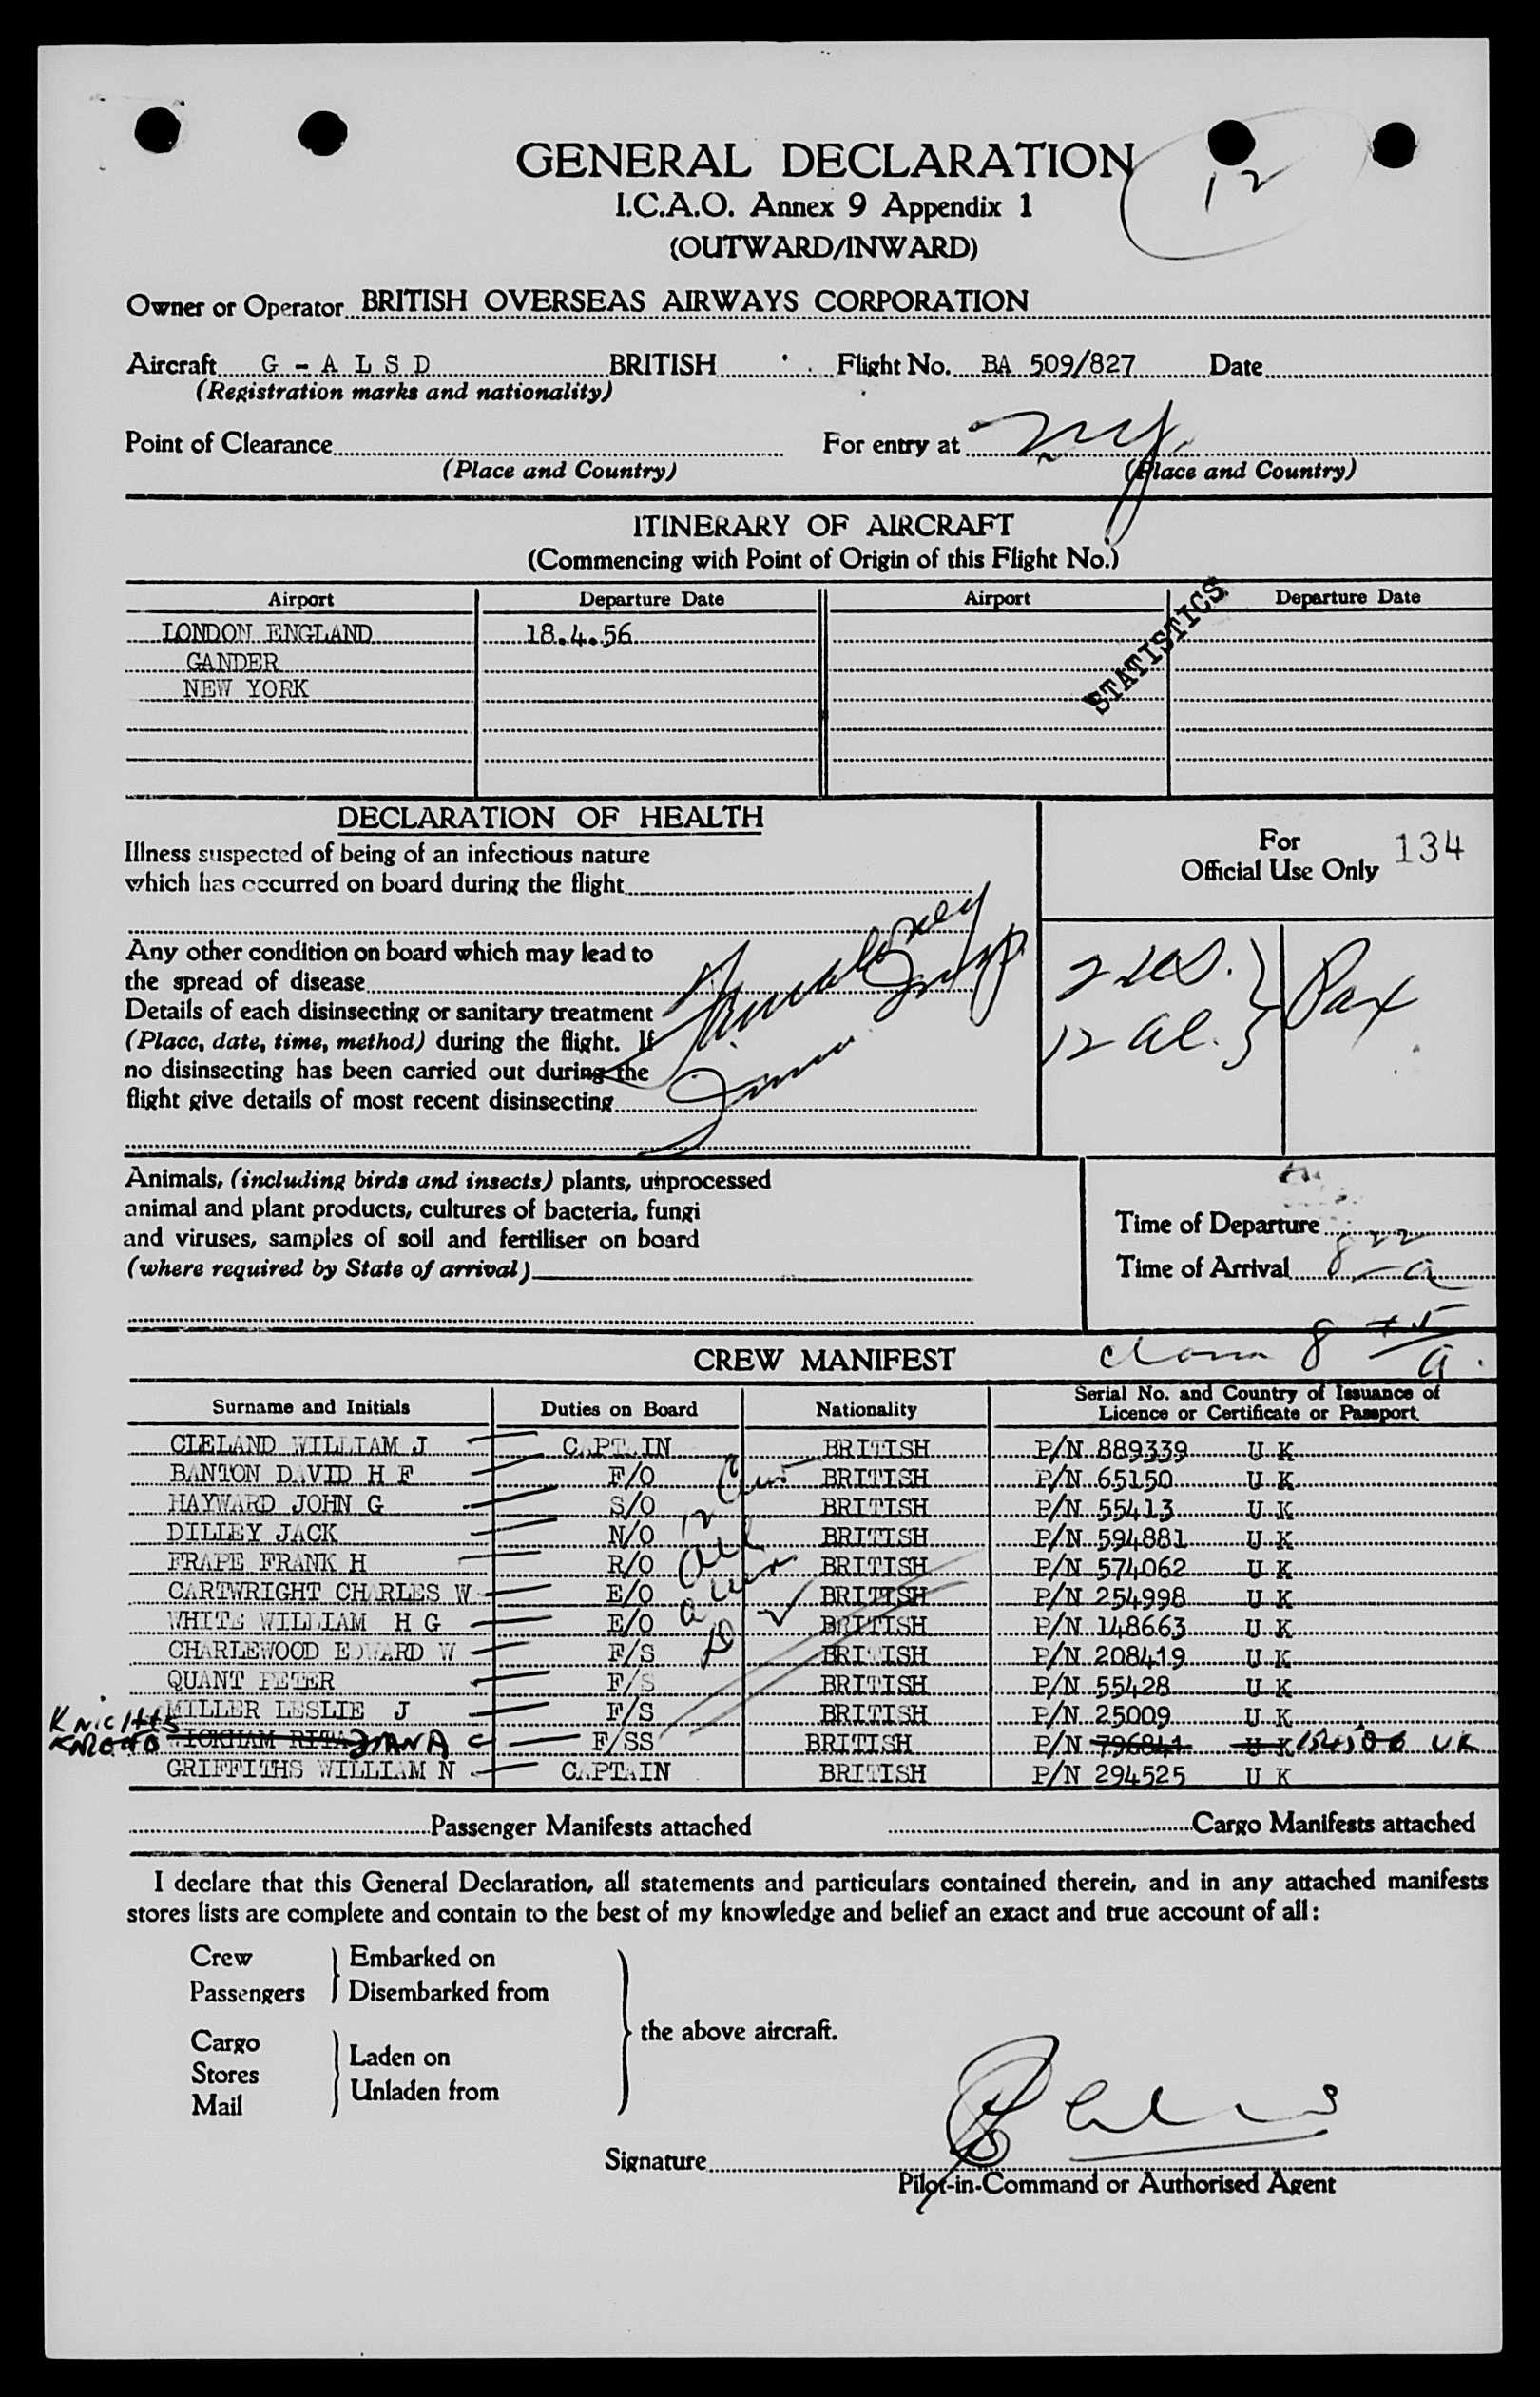 12
GENERAL DECLARATION
I.C.A.O. Annex 9 Appendix 1
(OUTWARD/INWARD)
Owner or Operator BRITISH OVERSEAS AIRWAYS CORPORATION
Aircraft G - A L S D BRITISH Flight No. BA 509/827 Date
(Registration marks and nationality)
Point of Clearance For entry at NY
(Place and Country) (Place and Country)
ITINERARY OF AIRCRAFT
(Commencing with Point of Origin of this Flight No.)
Airport Departure Date Airport Departure Date
LONDON ENGLAND 18.4.56
GANDER
NEW YORK
STATISTICS
DECLARATION OF HEALTH
Illness suspected of being of an infectious nature
which has occurred on board during the flight
For
Official Use Only 134
Any other condition on board which may lead to
the spread of disease
Details of each disinsecting or sanitary treatment
(Place, date, time, method) during the flight. If
no disinsecting has been carried out during the
flight give details of most recent disinsecting
12 al. Pax
Animals, (including birds and insects) plants, unprocessed
animal and plant products, cultures of bacteria, fungi
and viruses, samples of soil and fertiliser on board
(where required by State of arrival)
Time of Departure
Time of Arrival 8 22 a
CREW MANIFEST
Surname and Initials Duties on Board Nationality Serial No. and Country of Issuance of
Licence or Certificate or Passport
CLELAND WILLIAM J CAPTAIN BRITISH P/N 889339 U K
BANTON DAVID H F F/O BRITISH P/N 65150 U K
HAYWARD JOHN G S/O BRITISH P/N 55413 U K
DILLEY JACK N/O BRITISH P/N 594881 U K
FRAPE FRANK H R/O BRITISH P/N 574062 U K
CARTWRIGHT CHARLES W E/O BRITISH P/N 254998 U K
WHITE WILLIAM H G E/O BRITISH P/N 148663 U K
CHARLEWOOD EDWARD W F/S BRITISH P/N 208419 U K
QUANT PETER F/S BRITISH P/N 55428 U K
MILLER LESLIE J F/S BRITISH P/N 25009 U K
KNIGHTS
DIANA C F/SS BRITISH P/N 796841 U K UK
GRIFFITHS WILLIAM N CAPTAIN BRITISH P/N 294525 U K
Passenger Manifests attached Cargo Manifests attached
I declare that this General Declaration, all statements and particulars contained therein, and in any attached manifests
stores lists are complete and contain to the best of my knowledge and belief an exact and true account of all:
Crew Embarked on
Passengers Disembarked from
the above aircraft.
Cargo
Stores
Mail
Laden on
Unladen from
Signature
Pilot-in-Command or Authorised Agent